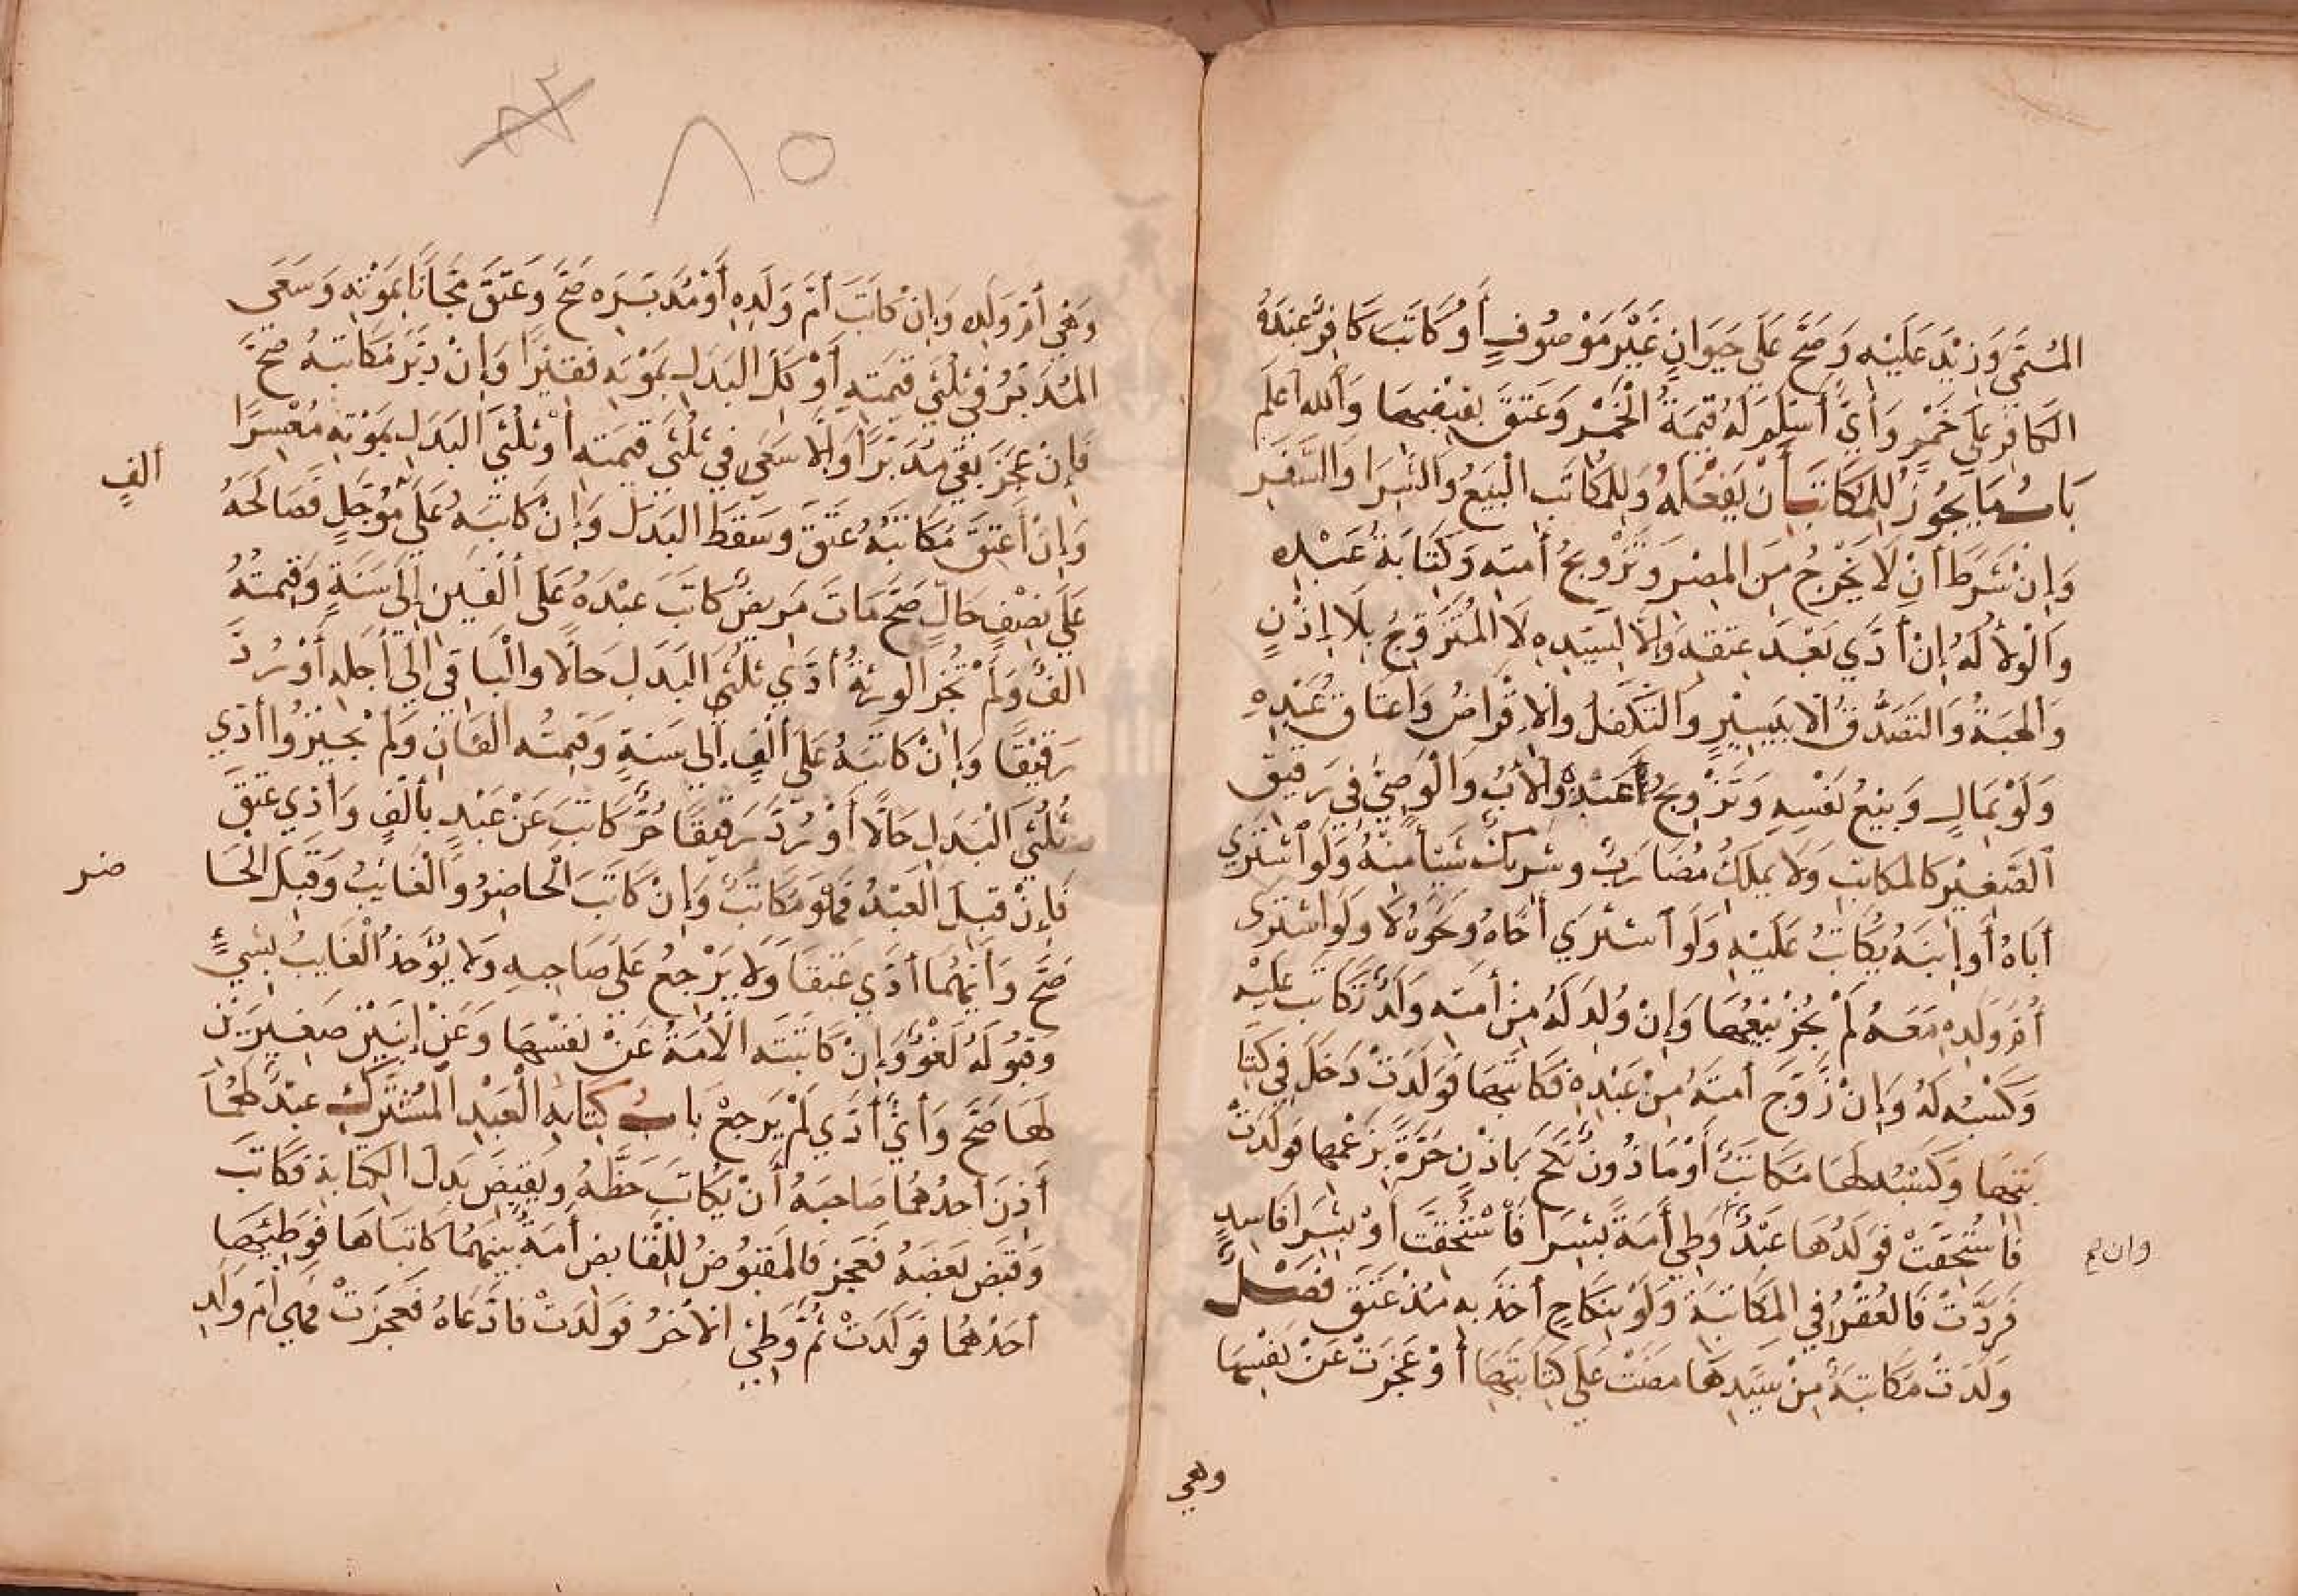 المُسَمَّى وَزِيْدَ عَلَيْهِ وَصَحَّ عَلَى حَيَوَانٍ غَيْرِ مَوْصُوفٍ أَوْ كَاتَبَ كَافِرٌ عَبْدَهُ
الكَافِرَ عَلَى خَمْرٍ وَأَيٌّ أَسْلَمَ لَهُ قِيْمَةُ الْخَمْرِ وَعَتَقَ بِقَبْضِهَا وَاللّٰه أَعْلَم
بَابُ مَا يَجُوزُ لِلْمُكَاتَبِ أَن يَفْعَلَهُ وَلِلْمُكَاتَبِ الْبَيْعُ وَالشِّرَا وَالسَّفَرُ
وَإِنْ شَرَطَ أَنْ لَا يَخْرُجَ مِنَ المِصْرِ وَتَزْوِيجُ أَمَتِهِ وَكِتَابَةُ عَبْدِهِ
وَالْوَلَأُ لَهُ إِنْ أَدَّي بَعْدَ عِتْقِهِ وَإِلَّا لِسَيِّدِهِ لَا التَّزَوُّجُ بِلَا إِذْنٍ
وَالْهِبَةُ وَالتَّصَدُّقُ اِلَّا بِيَسِيْرٍ وَالتَّكَفُّلُ وَالْإِقْرَاضُ وَإِعْتَاقُ عَبْدِهِ
وَلَوْ بِمَالٍ وَبَيْعُ نَفْسِهِ وَتَزْوِيجُ عَبْدِهِ وَالْأَبُ وَالْوَصِيُّ فِي رَقِيقِ
الصَّغِيْرِ كَالْمكَاتَبِ وَلَا يملِكُ مُضَارَبٌ وَشَرِيكٌ شَيْئًا مِنْهُ وَلَوِ اشْتَرَي
أَبَاهُ أَوِ ابْنَهُ يُكَاتَبُ عَلَيْهِ وَلَوِ اشْتَرَي أَخَاهُ وَنَحْوَهُ لَا وَلَوِ اشْتَرَى
أُمَّ وَلَدِهِ مَعَهُ لَمْ يَجُزْ بَيْعُهَا وَإِنْ وُلِدَ لَهُ مِنْ أَمَتِهِ وَلَدٌ تَكَاتَبَ عَلَيْهِ
وَكَسْبُه لَهُ وَإِنْ زَوَّجَ أَمَتَهُ مِنْ عَبْدِهِ فَكَاتَبَهَا فَوَلَدَتْ دَخَلَ فِي كِتَا
بَتِهَا وَكَسْبُه لَهَا مُكَاتَبٌ أَوْ مَاذُونٌ نَكَحَ بِاذْنٍ حُرَّةً بِزَعْمِهَا فَوَلَدَتْ
فَاسْتُحِقَّتْ فَوَلَدُهَا عَبْدٌ وَطِيَ أَمَةً بِشِرَا فَاسْتُحِقَّتْ أَوْ بِشِرَا فَاسِدٍ
وان لم
فَرُدَّتْ فَالْعُقْرُ فِي الْمُكَاتَبَةِ وَلَوْ بِنِكَاحٍ أُخِذَ بِهِ مُذْ عَتَقَ فَصْلٌ
وَلَدَتْ مُكَاتَبَةٌ مِنْ سَيِّدِهَا مَضَتْ عَلَى كِتَابَتِهَا أَوْ عَجَزَتْ عَنْ نَفْسِهَا
وهي
٨٥
وَهِيَ أُمُّ وَلَدِهِ وَإِنْ كَاتَبَ أُمَّ وَلَدِهِ أَوْ مُدَبَّرَه صَحَّ وَعَتَقَ مَجَّانًا بِمَوْتِهِ وَسَعَى
المُدَبَّرُ فِي ثُلُثَيْ قِيْمَتِهِ أَوْ كُلِّ البَدَلِ بِمَوْتِهِ فَقِيْرًا وَإِنْ دَبَّرَ مُكَاتَبَهُ صَحَّ
فَإِنْ عَجَزَ بَقِيَ مُدَبَّرًا وَإِلَّا سَعَي فِي ثُلُثَيْ قِيمَتِهِ أَوْ ثُلُثَيْ البَدَلِ بِمَوْتِهِ مُعْسِرًا
وَإِنْ أَعْتَقَ مُكَاتَبَهُ عَتَقَ وَسَقَطَ البَدَلُ وَإِنْ كَاتَبَهُ عَلَى مُؤَجَّلٍ فَصَالَحَهُ
ألفٍ
عَلَي نِصْفٍ حَالٍّ صَحَّ مَاتَ مَرِيضٌ كَاتَبَ عَبْدَهُ عَلَى أَلْفَيْنِ إِلَى سَنَةٍ وَقِيمَتُهُ
الفٌ وَلَمْ تُجِزِ الْوَرَثَةُ أَدَّي ثُلُثَي البَدَلِ حَالًا وَالْبَاقِي إِلَى أَجَلِهِ أَوْ رُدَّ
رَقِيْقًا وَإِنْ كَاتَبَهُ عَلَى أَلْفٍ إِلَى سَنَةٍ وَقِيمَتُه الفَانِ وَلَمْ يُجِيْزُوا أَدَّي
ثُلُثَيِ الْبَدَلِ حَالًا أَوْ رُدَّ رَقِيقًا حُرٌّ كَاتَبَ عَنْ عَبْدٍ بِأَلْفٍ وَأَدَّي عَتَقَ
فَإِنْ قَبِلَ الْعَبْدُ فَهْوَ مُكَاتَبٌ وَإِنْ كَاتَبَ الْحَاضِرُ وَالْغَايِبُ وَقَبِلَ الْحَا
ضر
صَحَّ وَأَيُّهُمَا أَدَّي عَتَقَا وَلَا يَرْجِعُ عَلَى صَاحِبِهِ وَلَا يُؤْخَذُ الْغَايِبُ بِشَيْءٍ
وَقَبُولُهُ لَغْوٌ وَإِنْ كَاتَبَتِ الْأَمَةُ عَنْ نَفْسِهَا وَعَنْ إبْنَيْنِ صَغِيرَيْنِ
لَهَا صَحَّ وَأَيٌّ أَدَّي لَمْ يَرجِعْ بَابُ كِتَابَةِ الْعَبْدِ الْمُشْتَرَكِ عَبْدٌ لَهُمَا
أَذِنَ أَحَدُهُمَا صَاحِبَهُ أَنْ يُكَاتِبَ حَظَّهُ وَيَقْبِضَ بَدَلَ الْكِتَابَةِ فَكَاتَبَ
وَقَبَضَ بَعْضَهُ فَعَجَزَ فَالْمَقْبُوضُ لِلْقَابِضِ أَمَةٌ بَيْنَهُمَا كَاتَبَاهَا فَوَطِئَهَا
أَحَدُهُمَا فَوَلَدَتْ ثُمَّ وَطِئَ الأَخَرُ فَوَلَدَتْ فَادَّعَاهُ فَعَجَزَتْ فَهِي أُمُّ وَلَدٍ